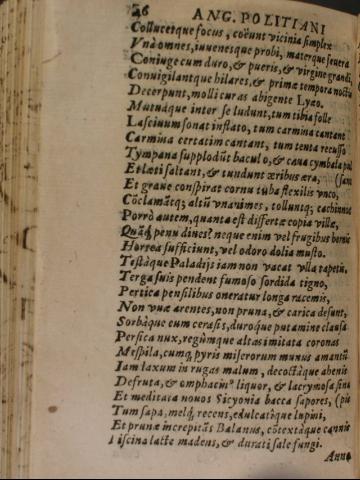 26 ANG. POLITIANI
Collucetque focus, coëunt vicinia simplex
Vnà omnes, iuuenesque probi, materque seuera
Coniuge cum duro, & pueris, & virgine grandi,
Conuigilantque hilares, & primæ tempora noctis
Decerpunt, molli curas abigente Lyæo.
Mutuáque inter se ludunt, tum tibia folle
Lasciuum sonat inflato, tum carmina cantant
Carmina certatim cantant, tum tenta recusso
Tympana supplodũt baculo, & caua cymbala
Et læti saltant, & tundunt æribus æra, (
Et graue conspirat cornu tuba flexilis vnco,
Cõclamãtq; altũ vnanimes, tolluntq; cachinnos
Porrò autem, quanta est differtæ copia villæ,
Quãq; penu diues? neque enim vel frugibus horna
Horrea sufficiunt, vel odoro dolia musto.
Testáque Paladijs iam non vacat vlla trapetũ,
Terga suis pendent fumoso sordida tigno,
Pertica pensilibus oneratur longa racemis,
Non vuæ arentes, non pruna, & carica desunt,
Sorbáque cum cerasis, duroque putamine clausa
Persica nux, regũmque altas imitata coronas
Mespila, cumq; pyris miserorum munus amantũ
Iam laxum in rugas malum, decoctáque abenis
Defruta, & omphacinꝰ liquor, & lacrymosa sina
Et meditata nouos Sicyonia bacca sapores, (
Tum sapa, melq; recens, edulcatique lupini,
Et prunæ increpitũs Balanus, cõtextáque cannis
Piscina lacte madens, & durati sale fungi.
Anno